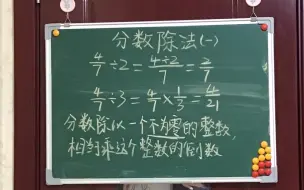 分数除法(一)
4/7÷2=4÷2/7=2/7
4/7÷3=4/7×1/3=4/21
分数除以一个不为零的整数,
相当乘这个整数的倒数